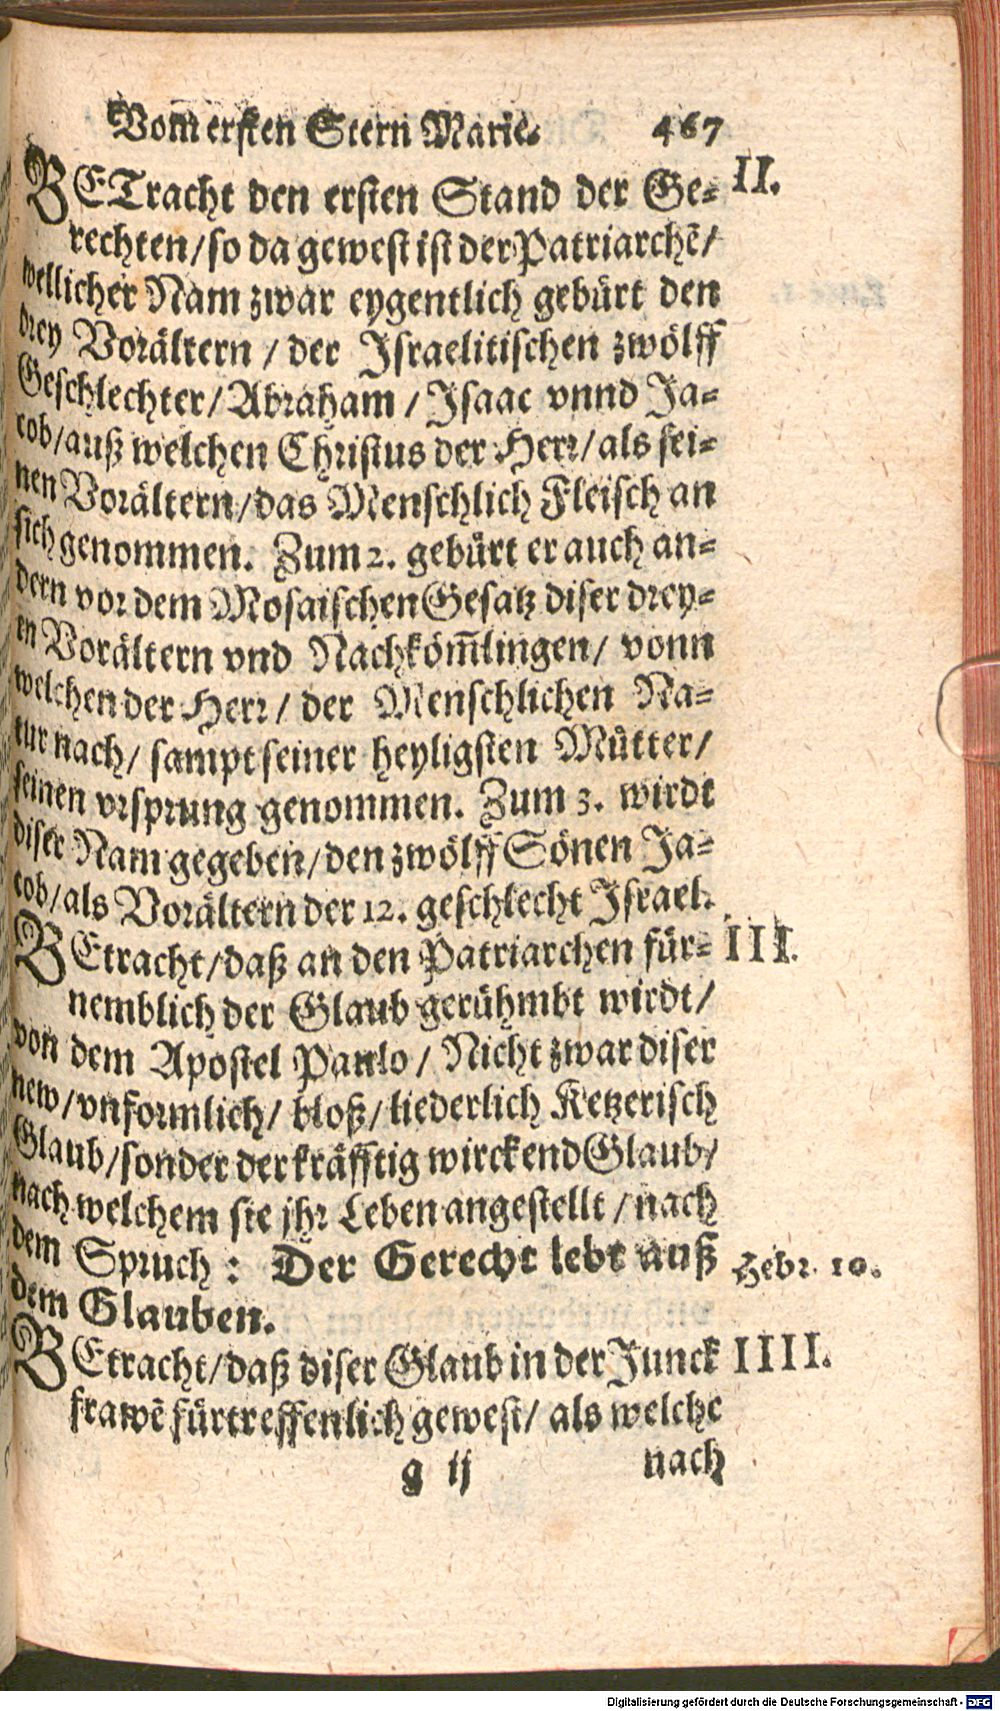 Vom̃ ersten Stern Marie. 467
BETracht den ersten Stand der Ge- II.
rechten/ so da gewest ist der Patriarchẽ/
wellicher Nam zwar eygentlich gebürt den
drey Vorältern / der Israelitischen zwölff
Geschlechter/ Abraham / Isaac vnnd Ja-
cob/ auß welchen Christus der Herr/ als sei-
nen Vorältern/ das Menschlich Fleisch an
sich genommen. Zum 2. gebürt er auch an-
dern vor dem Mosaischen Gesatz diser drey-
en Vorältern vnd Nachköm̃lingen/ vonn
welchen der Herr/ der Menschlichen Na-
tur nach/ sampt seiner heyligsten Mütter/
seinen vrsprung genommen. Zum 3. wirdt
diser Nam gegeben/ den zwölff Sönen Ja-
cob/ als Vorältern der 12. geschlecht Israel.
BEtracht/ daß an den Patriarchen für- III.
nemblich der Glaub gerühmbt wirdt/
von dem Apostel Paulo / Nicht zwar diser
new/ vnformlich/ bloß/ liederlich Ketzerisch
Glaub/ sonder der kräfftig wirckend Glaub/
nach welchem sie jhr Leben angestellt / nach
dem Spruch : Der Gerecht lebt auß Hebr. 10.
dem Glauben.
BEtracht/ daß diser Glaub in der Junck IIII.
frawẽ fürtreffenlich gewest/ als welche
g ij nach
Digitalisierung gefördert durch die Deutsche Forschungsgemeinschaft - DFG